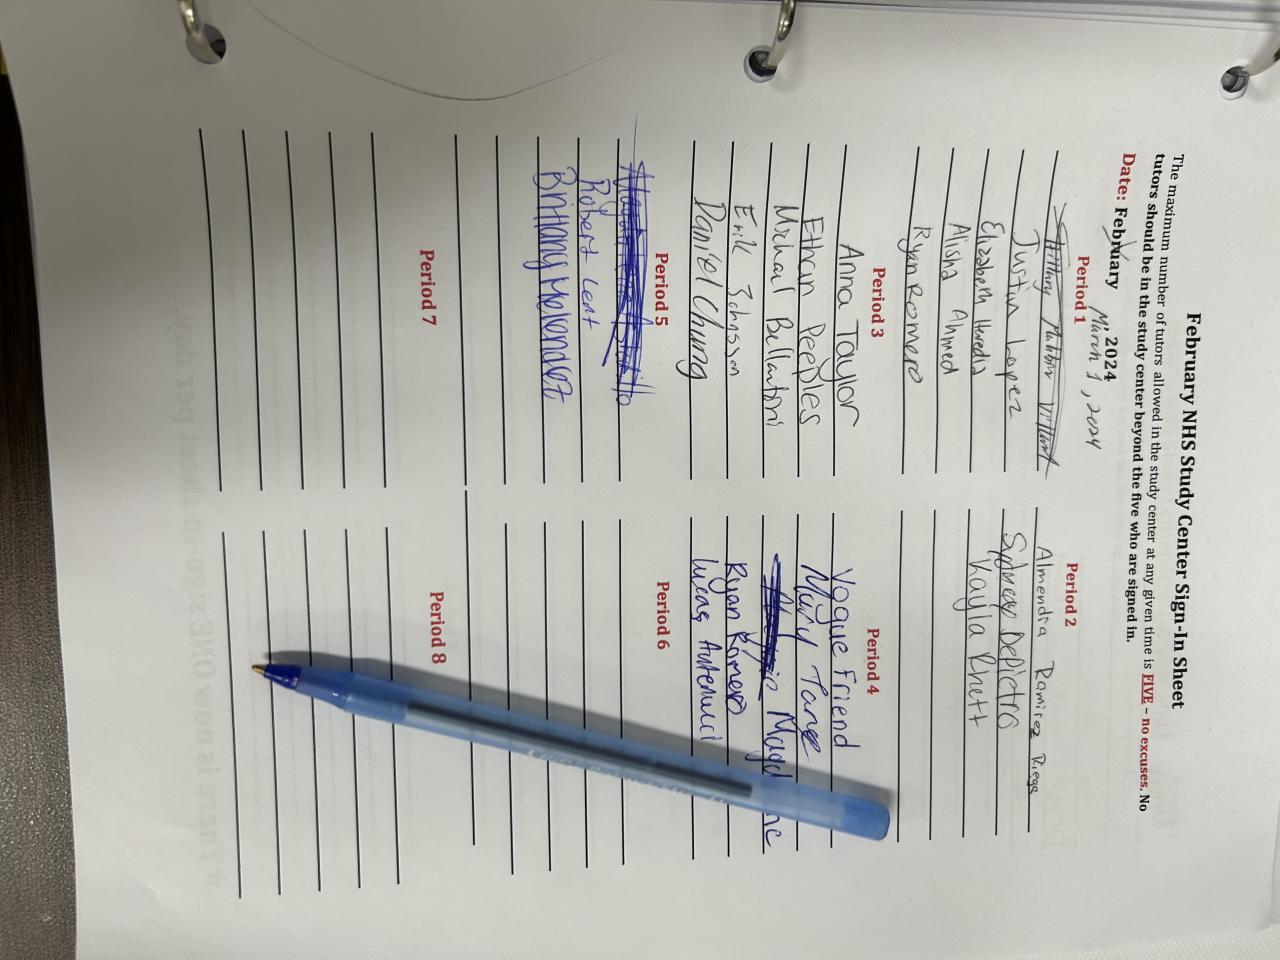 February NHS Study Center Sign-In Sheet
The maximum number of tutors allowed in the study center at any given time is FIVE – no excuses. No
tutors should be in the study center beyond the five who are signed in.
Date: February , 2024
March 1, 2024
Period 1
Justin Lopez
Elizabeth Heredia
Alisha Ahmed
Ryan Romero
Period 2
Almendra Ramirez Riega
Sydney Depietro
Kayla Rhett
Period 3
Anna Taylor
Ethan Peeples
Michael Bellantoni
Erik Johnsson
Daniel Chung
Period 4
Vogue Friend
Mary Tang
Ryan Romero
Lucas Antenucci
Period 5
Robert Lent
Brittany Melendez
Period 6
Period 7
Period 8
* There is now ONE sign-in sheet per day